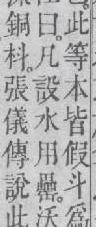 此等本皆假斗爲
注曰。凡設水用罍。沃
銅枓。張儀傳說此